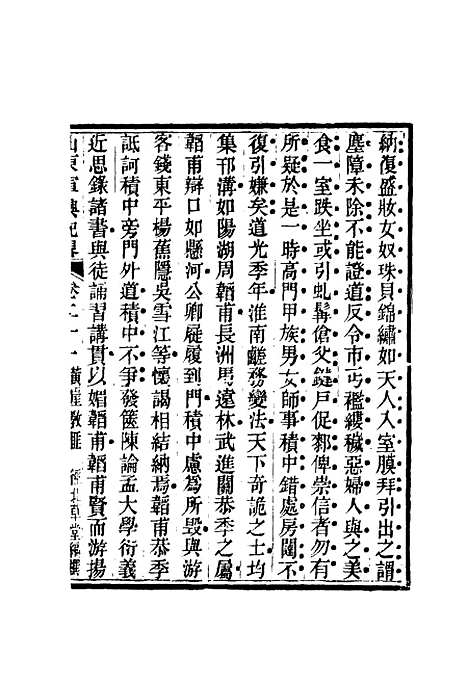 納復盛妝女奴珠貝錦繡如天人入室膜拜引出之謂
塵障未除不能證道反令市丐襤縷穢惡婦人與之美
食一室趺坐或引虬髯傖父鍵戶促鄰俾崇信者勿有
所疑於是一時高門甲族男女師事積中錯處房闥不
復引嫌矣道光季年淮南鹺務變法天下奇詭之士均
集邗溝如陽湖周韜甫長洲馬遠林武進關恭季之屬
韜甫辯口如懸河公卿屣履到門積中慮為所毀與游
客錢東平楊蕉隱吳雪江等懷謁相結納焉韜甫恭季
詆訶積中旁門外道積中不爭發篋陳論孟大學衍義
近思錄諸書與徒誦習講貫以媚韜甫韜甫賢而游揚
山東軍興紀畧 卷二十一 黃崖教匪